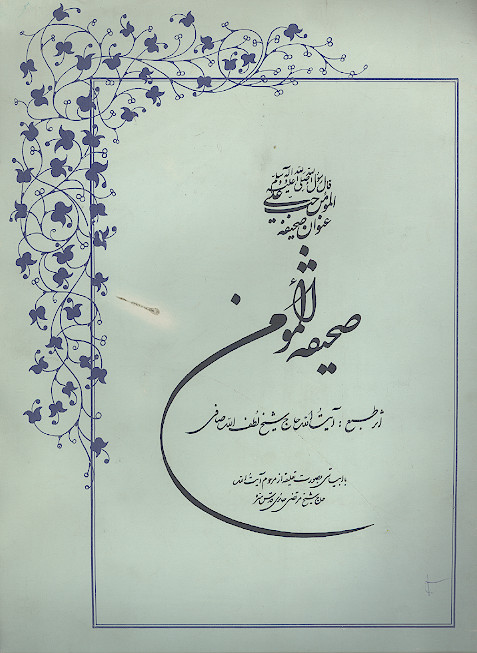 قال رسول الله صلی الله علیه و آله
عنوان صحیفة
المؤمن حب علی
صحیفة المؤمن
اثر طبع : آیت الله حاج شیخ لطف الله صافی
با ابیاتی بصورت تعلیقه از مرحوم آیت الله
حاج شیخ مرتضی حائری